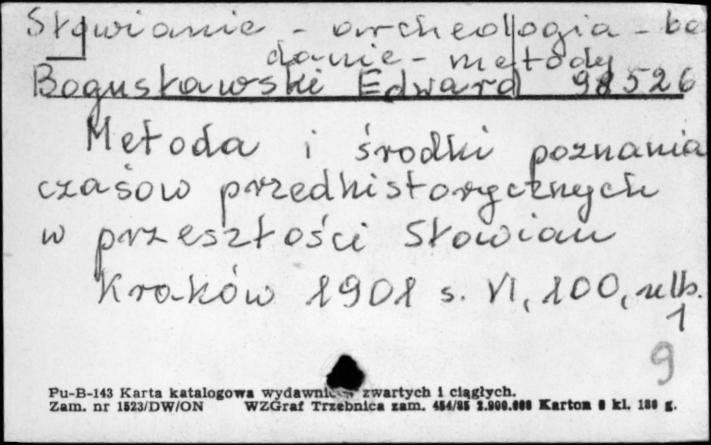 Słowianie - archeologia - ba
danie - metody
Bogusławski Edward 98526
Metoda i środki poznania
czasów przedhistorycznych
w przeszłości Słowian
Kraków 1901 s. VI, 100, nlb.
1
9
Pu-B-143 Karta katalogowa wydawnictw zwartych i ciągłych.
Zam. nr 1523/DW/ON WZGraf Trzebnica zam. 454/85 2.900.000 Karton 8 kl. 180 g.